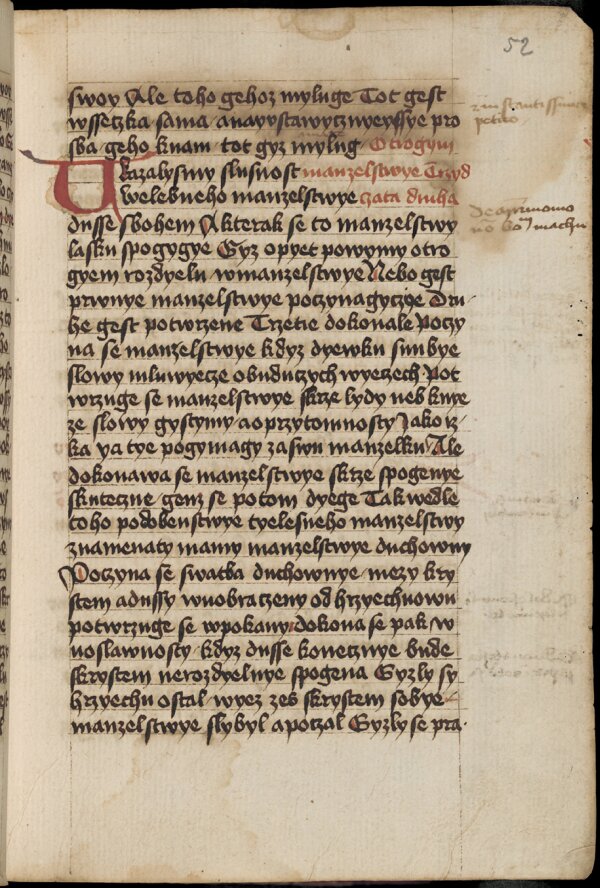 52
swoy Ale toho gehoz myluge Tot gest
wssetzka sama anayvstawytz nweyssye pro
sba geho knam tot gyz mylug Otrogym
Ukazalysmy slusnost manzelstwye Trzyd
welebneho manzelstwye czata druha
dusse sbohem Akterak se to manzelstwy
lasku spogygye Gyz opyet powymy otro
gyem rozdyelu wmanzelstwye Nebo gest
prwnye manzelstwye poczynagyczye Dru
he gest potwrzene Trzetie dokonale Poczy
na se manzelstwye kdyz dyewku snubye
slowy mluwyecze obuduczych wyeczech Pot
wrzuge se manzelstwye skrze lydy neb knye
ze slowy gystymy aoprzytomnosty Jako rz
ka ya tye pogymagy zaswu manzelku Ale
dokonawa se manzelstwye skrze spogenye
skuteczne genz se potom dyege Tak wedle
toho podobenstwye tyelesneho manzelstwy
znamenaty mamy manzelstwye duchowny
Poczyna se swatba duchownye mezy kry
stem adussy wuobraczeny od hrzyechuowu
potwrzuge se wpokany dokona se pak w
uoslawnosty kdyz dusse konecznye bude
skrystem nerozdyelnye spogena Gyzly sy
hrzyechu ostal wyez zes skrystem sobye
manzelstwye slybyl apoczal Gyzly se pra